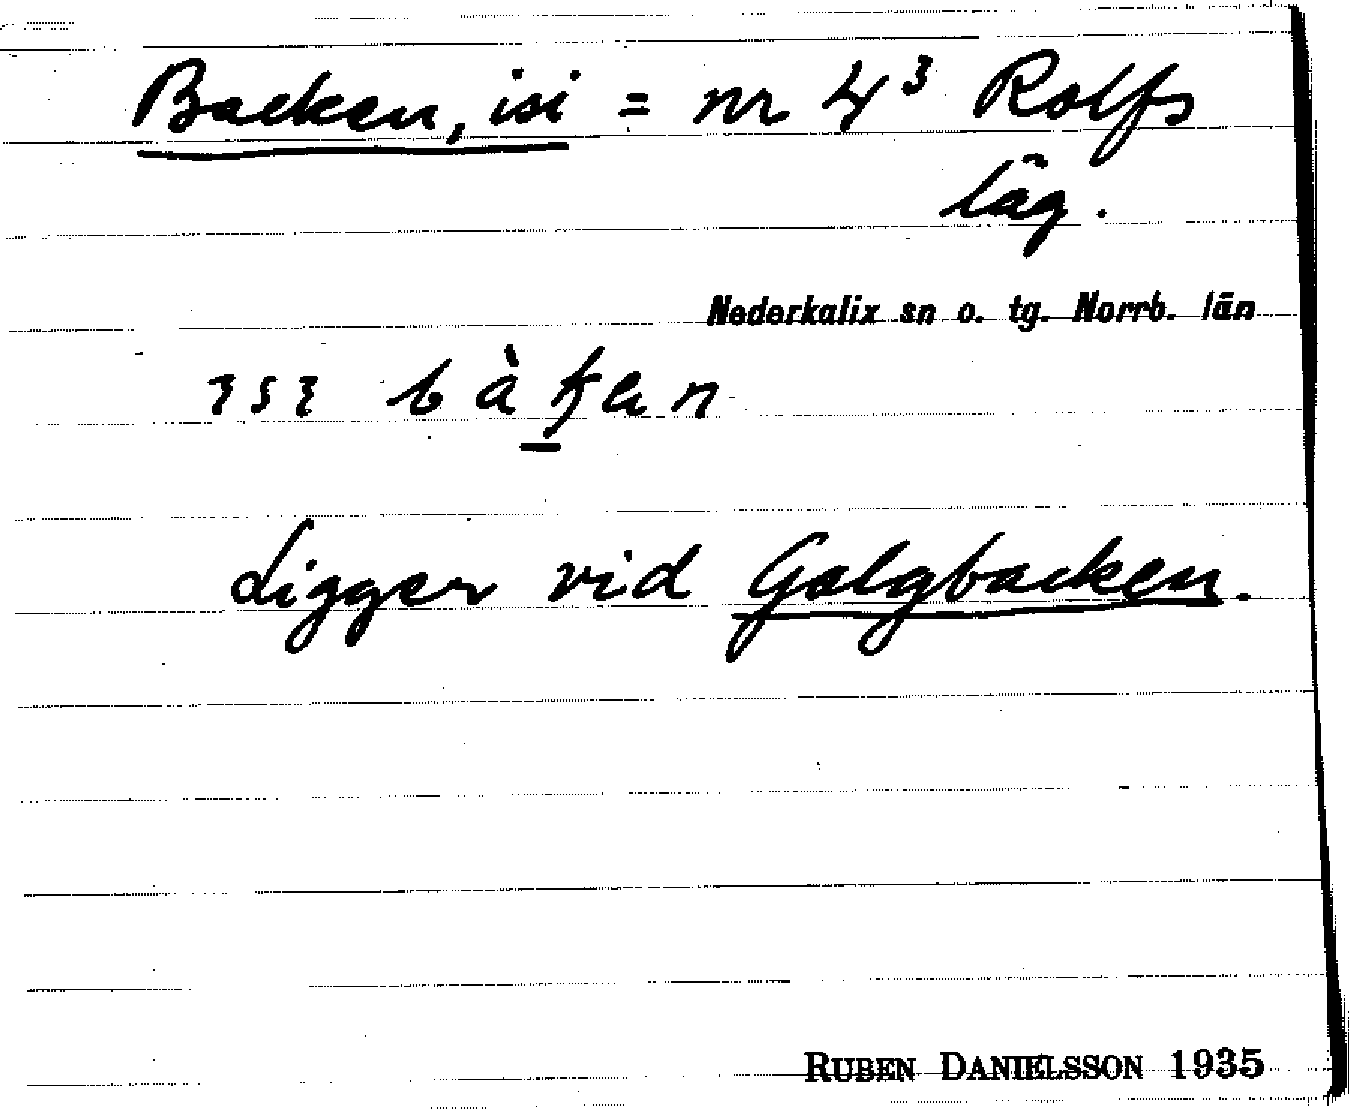 Backen, isi = nr 4³ Rolfs
läg.
Nederkalix sn o. tg. Norrb. län
Ligger vid Galgbacken.
RUBEN DANIELSSON 1935